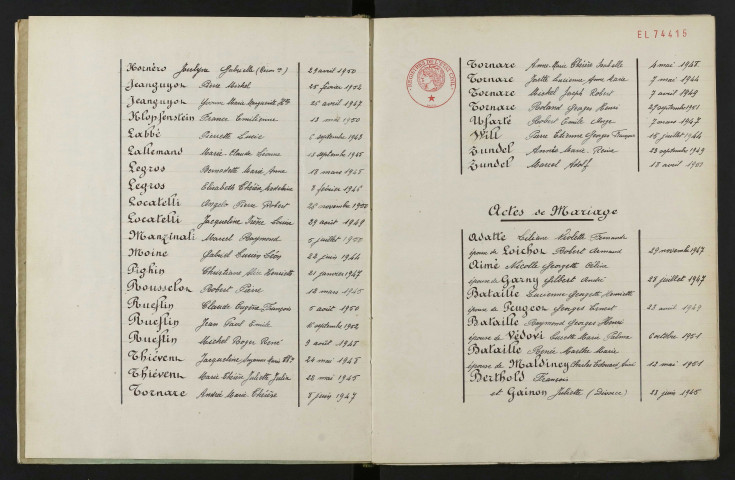 Hornéro Gabrielle 29 avril 1950
Jeanguyon Pierre Michel 25 février 1954
Jeanguyon Yvonne Marie Marguerite 26 avril 1947
Klopfenstein France Emilienne 13 mai 1950
Labbé Pierrette Lucie 6 septembre 1943
Lallemand Marie Claude 13 septembre 1945
Legros Bernadette Marie Anne 18 mars 1945
Legros Elisabeth Thérèse 8 février 1946
Locatelli Angelo Pierre Robert 26 novembre 1950
Locatelli Jacqueline Irène Louise 29 août 1949
Manzinali Marcel Raymond 5 juillet 1950
Moine Gabriel Lucien Léon 22 juin 1944
Pighin Christiane Henriette 21 janvier 1947
Rousselot Robert Pierre 12 mars 1945
Rueflin Claude Eugène François 5 août 1950
Rueflin Jean Paul Emile 16 septembre 1952
Rueflin Michel Roger René 9 août 1948
Thiévent Jacqueline Suzanne Marie 24 mai 1948
Thiévent Marie Thérèse Juliette Julia 22 mai 1945
Tornare André Marie Thérèse 8 juin 1947
EL 74415
Tornare Anne Marie Thérèse Isabelle 4 mai 1948
Tornare Joëlle Lucienne Anne Marie 7 mai 1944
Tornare Michel Joseph Robert 7 avril 1949
Tornare Roland Georges Henri 27 septembre 1951
Ufarté Robert Emile Ange 7 mars 1947
Will Pierre Etienne Georges François 15 juillet 1944
Zundel Année Marie Reine 23 septembre 1949
Zundel Marcel Adolf 18 avril
Actes de Mariage
Adatte Liliane Violette Fernande
épouse de Loichot Robert Armand 29 novembre 1947
Aimé Nicolle Georgette
épouse de Garny Gilbert André 28 juillet 1947
Bataille Lucienne Georgette Henriette
épouse de Peugeot Georges Ernest 23 avril 1949
Bataille Raymond Georges Henri
époux de Védovi Lucette Marie Palma 6 octobre 1951
Bataille Renée Marthe Marie
épouse de Maldiney Charles Edouard 12 mai 1951
Berthold François
et Gainon Juliette (Divorce) 23 juin 1945